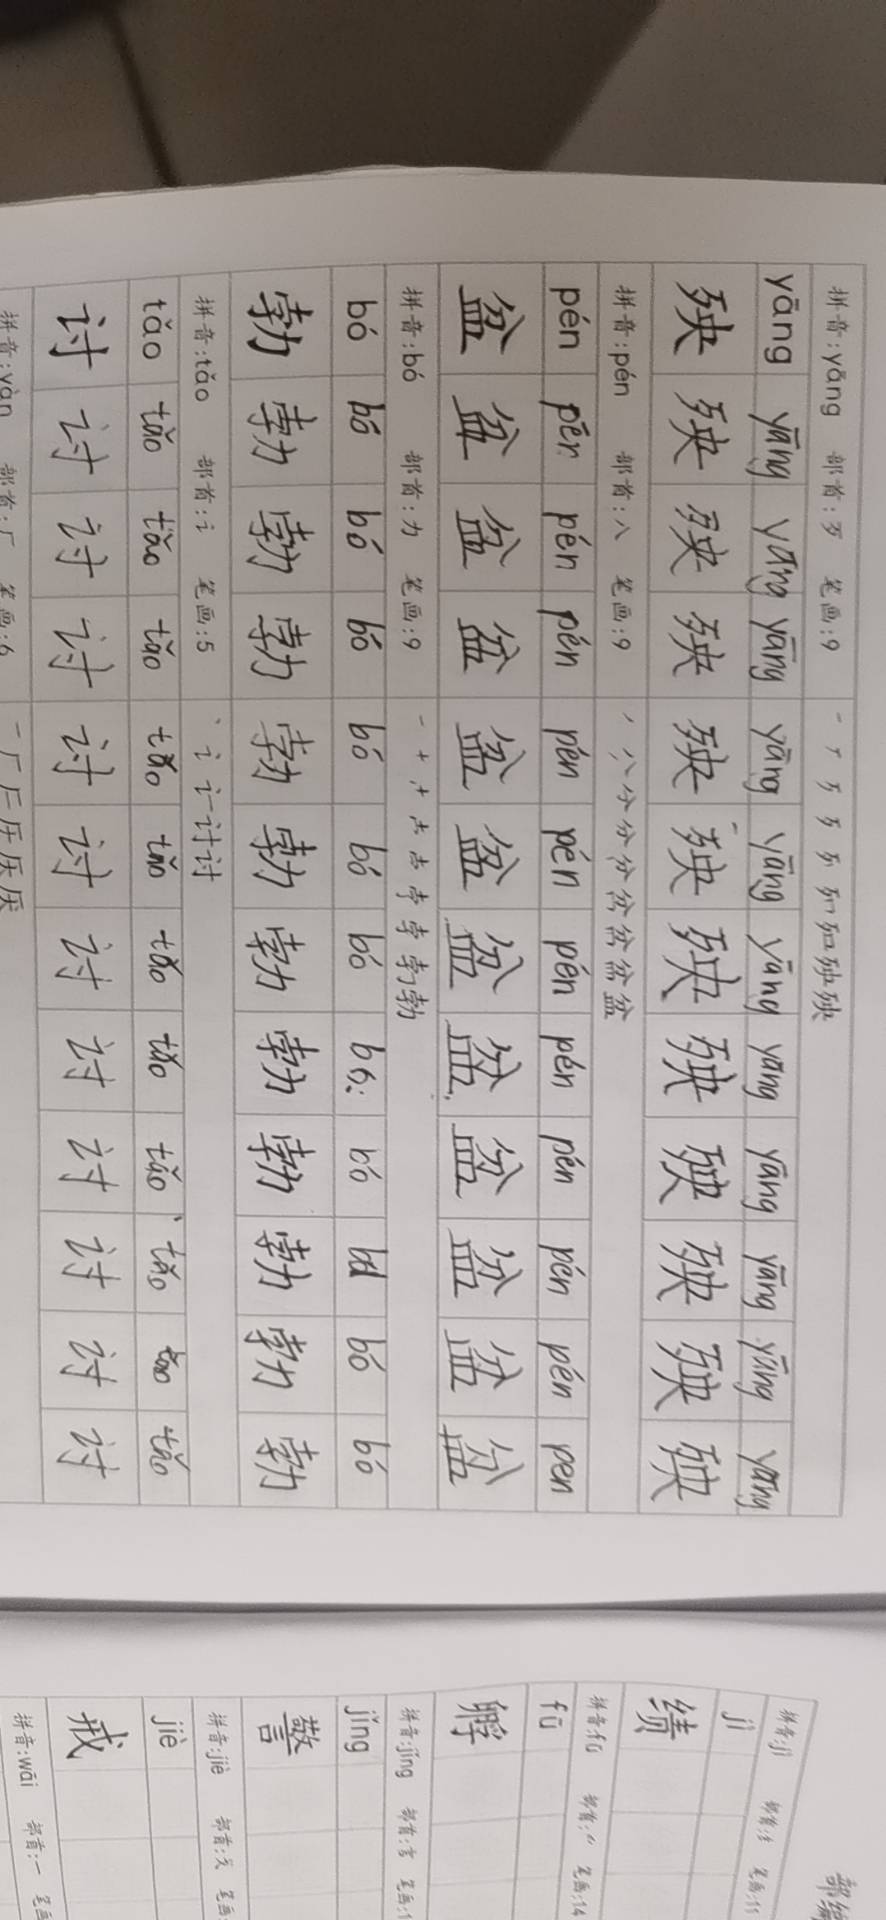 拼音:yāng 部首:歹 笔画:9 一 丆 歹 歹
yāng yāng yāng yāng yāng yāng yāng yāng yāng yāng yāng yāng
殃 殃 殃 殃 殃 殃 殃 殃 殃 殃 殃 殃
拼音:pén 部首:八 笔画:9 丿 八 分 分 盆
pén pēn pén pén pén pén pén pén pén pén pén pen
盆 盆 盆 盆 盆 盆 盆 盆 盆 盆 盆 盆
拼音:bó 部首:力 笔画:9 一 十 孛 勃
bó bó bó bó bó bó bó bó bó bó bó
勃 勃 勃 勃 勃 勃 勃 勃 勃 勃 勃 勃
拼音:tǎo 部首:讠 笔画:5 丶 讠 讨 讨
tǎo tǎo tǎo tǎo tǎo tǎo tǎo tǎo tǎo tǎo tao tǎo
讨 讨 讨 讨 讨 讨 讨 讨 讨 讨 讨 讨
拼音:yàn 部首:厂 笔画:6 一 厂 厂 厈 厌 厌
部编
拼音:jì 部首:纟 笔画:11
jì
绩
拼音:fū 部首:爫 笔画:14
fū
孵
拼音:jǐng 部首:言 笔画:1
jǐng
警
拼音:jiè 部首:戈 笔画:
jiè
戒
拼音:wāi 部首:一 笔画